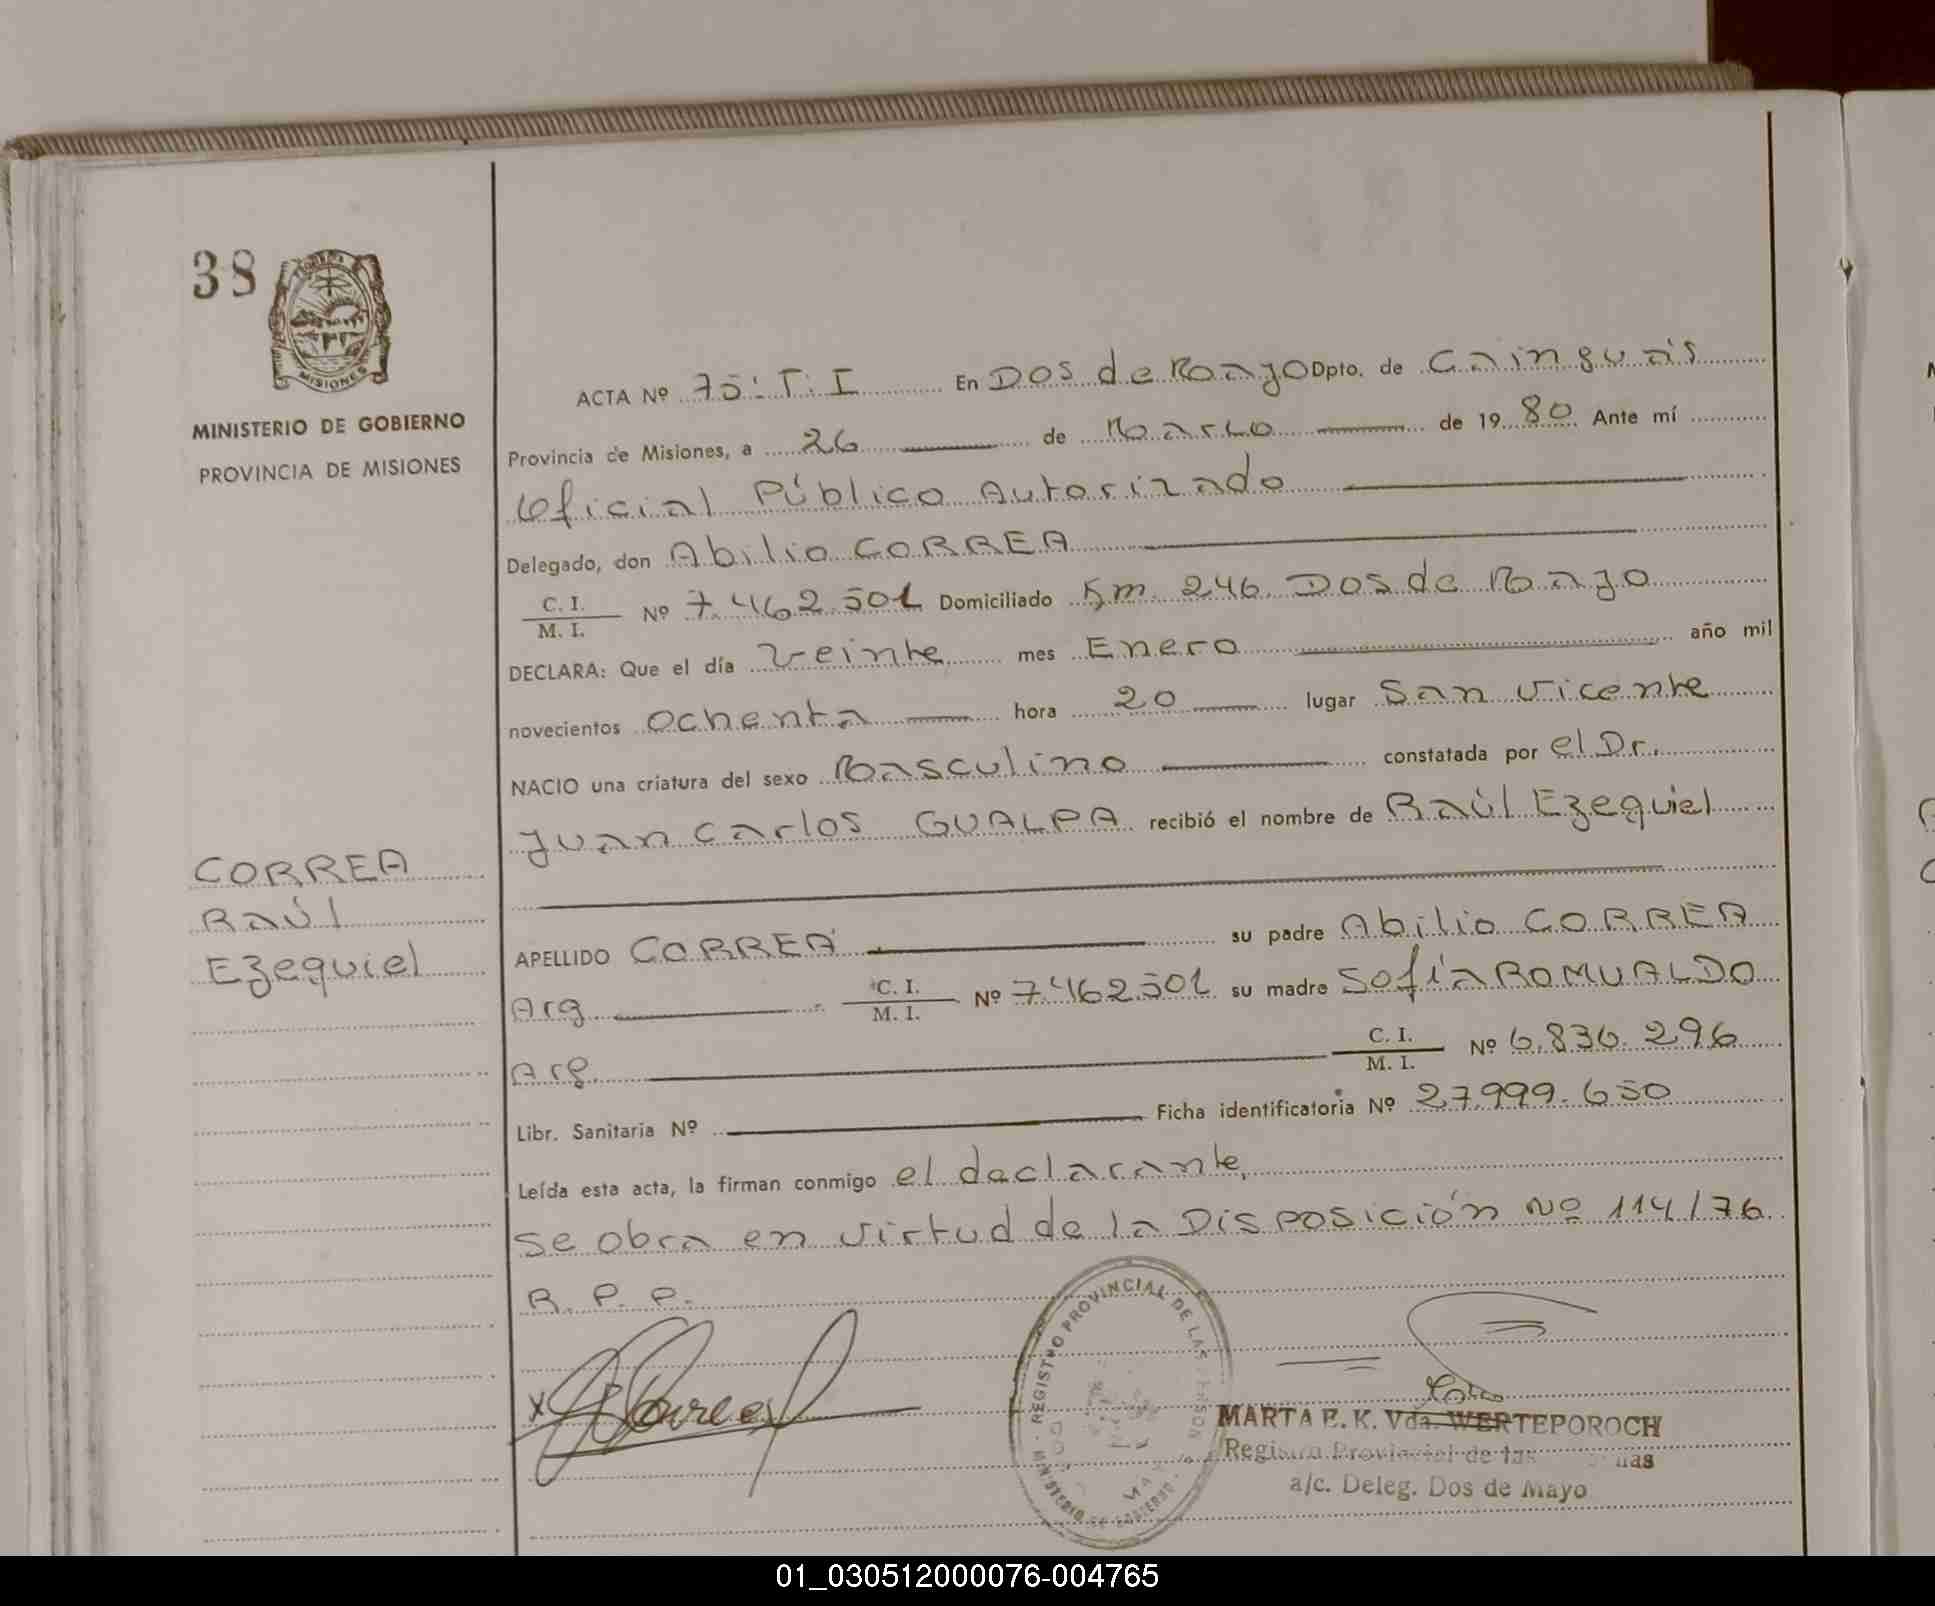 38
MISIONES
MINISTERIO DE GOBIERNO
PROVINCIA DE MISIONES
ACTA Nº 75: T: I En Dos de Mayo Dpto. de Cainguás
Provincia de Misiones, a 26 de Marzo de 1980 Ante mí
Oficial Público Autorizado
Delegado, don Abilio CORREA
C. I.
M. I. Nº 7.462.501 Domiciliado Km. 246. Dos de Mayo
DECLARA: Que el día Veinte mes Enero año mil
novecientos ochenta hora 20 lugar San Vicente
NACIO una criatura del sexo Masculino constatada por el Dr.
Juan Carlos GUALPA recibió el nombre de Raúl Ezequiel
CORREA
Raúl
Ezequiel
APELLIDO CORREA su padre Abilio CORREA
Arg C. I.
M. I. Nº 7.462.501 su madre Sofía ROMUALDO
Arg. C. I.
M. I. Nº 6.830.296
Libr. Sanitaria Nº Ficha identificatoria Nº 27.999.650
Leída esta acta, la firman conmigo el declarante,
se obra en virtud de la Disposición Nº 114/76
R. P. P.
x Correa
REGISTRO PROVINCIAL DE LAS
MINISTERIO DE GOBIERNO
MARTA E. K. Vda. WERTEPOROCH
Registro Provincial de las
a/c. Deleg. Dos de Mayo
01_030512000076-004765